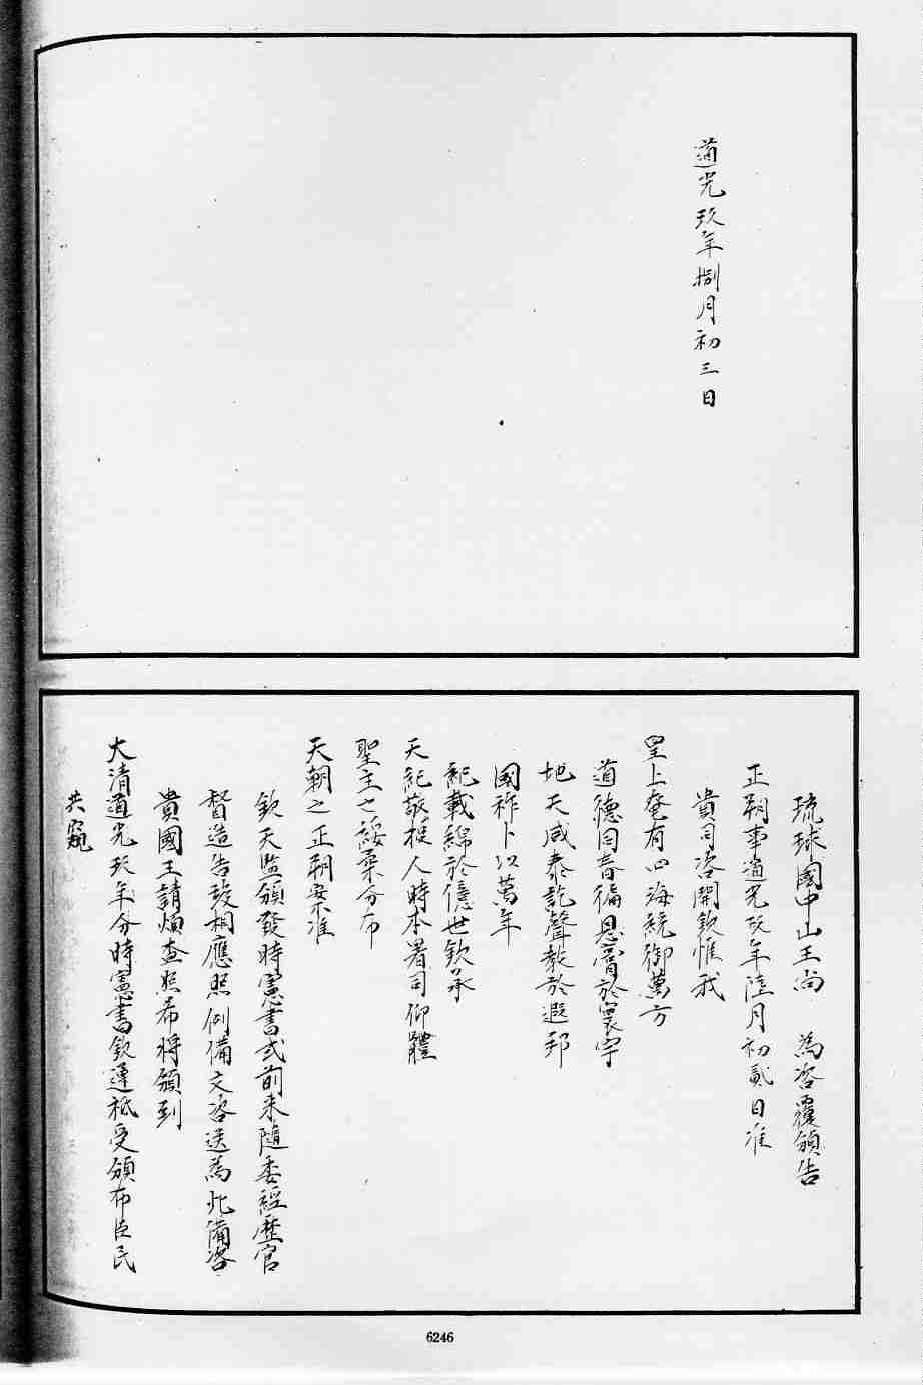 道光玖年捌月初三日
琉球國中山王尚 為咨覆頒告
正朔事道光玖年陸月初貳日准
貴司咨開欽惟我
皇上奄有四海統御萬方
道德同春徧恩膏於寰宇
地天咸泰訖聲教於遐邦
國祚卜以萬年
紀載綿於億世欽承
天紀敬授人時本署司仰體
聖主之綏柔分布
天朝之正朔案准
欽天監頒發時憲書式前来随委經歷官
督造告竣相應照例備文咨送為此備咨
貴國王請煩查照希將頒到
大清道光玖年分時憲書欽遵祗受頒布臣民
共窺
6246